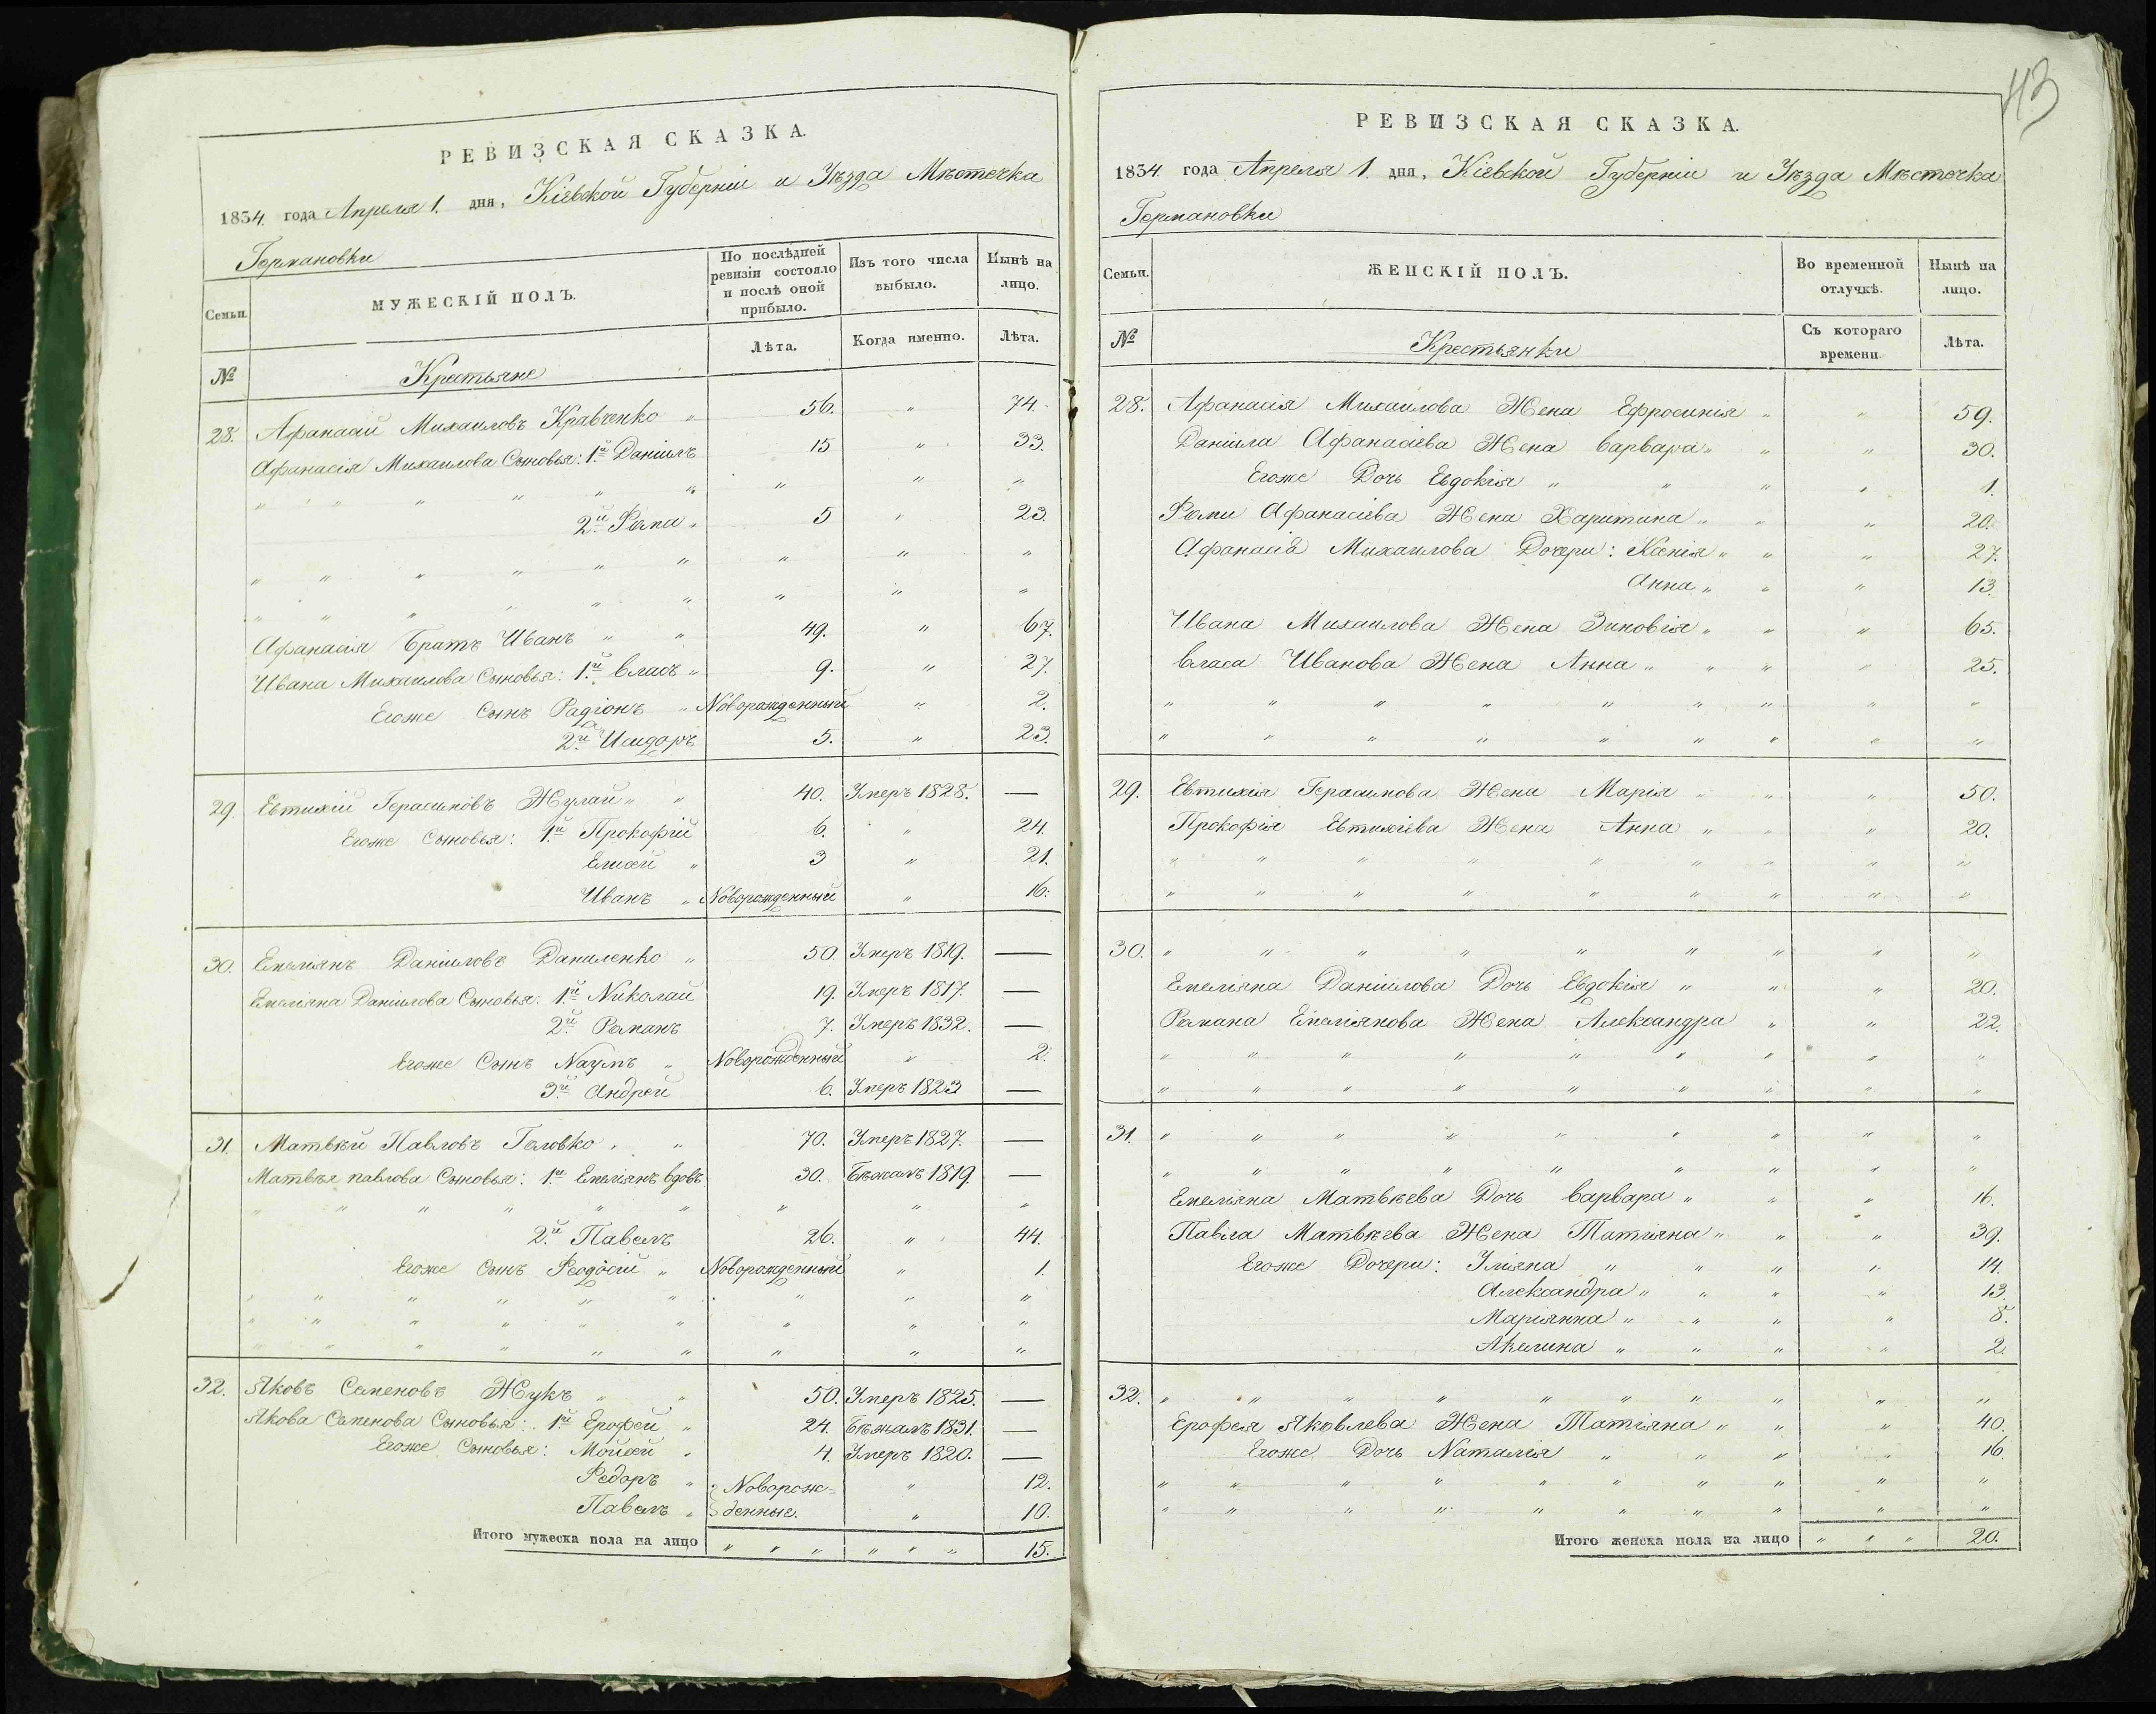 РЕВИЗСКАЯ СКАЗКА.
1834. года Апреля 1. дня, Кіевской Губерніи и Уѣзда Мѣстечка
Германовки
Семьи.
МУЖЕСКІЙ ПОЛЪ.
По послѣдней ревизіи состояло и послѣ оной прибыло.
Изъ того числа выбыло.
Нынѣ на лицо.
№
Крестьяне
Лѣта.
Когда именно.
Лѣта.
28. Афанасій Михаиловъ Кравченко " 56. " 74.
Афанасія Михаилова Сыновья: 1й Даніилъ 15 " 33.
" " " " " " " " "
2й Фома " 5 " 23.
" " " " " " " " "
" " " " " " " " "
Афанасія Братъ Иванъ " " 49. " 67.
Ивана Михаилова Сыновья: 1й Власъ " 9. " 27.
Егоже Сынъ Радіонъ " Новорожденный " 2.
2й Исидоръ 5. " 23.
29. Евтихій Герасимовъ Жулай " " 40. Умеръ 1828. —
Егоже Сыновья: 1й Прокофій 6. " 24.
Елисей " 3 " 21.
Иванъ " Новорожденный " 16.
30. Емеліянъ Даніиловъ Даниленко " 50. Умеръ 1819. —
Емеліяна Даніилова Сыновья: 1й Николай 19. Умеръ 1817. —
2й Романъ 7. Умеръ 1832. —
Егоже Сынъ Наумъ " Новорожденный " 2.
3й Андрей 6. Умеръ 1823 —
31. Матвѣй Павловъ Головко " " 70. Умеръ 1827. —
Матвѣя павлова Сыновья: 1й Емеліянъ вдовъ 30. Бѣжалъ 1819. —
" " " " " " " " "
2й Павелъ 26. " 44.
Егоже Сынъ Феодосій " Новорожденный " 1.
" " " " " " " " "
" " " " " " " " "
" " " " " " " " "
32. Яковъ Семеновъ Жукъ " " 50. Умеръ 1825. —
Якова Семенова Сыновья: 1й Ерофей " 24. Бѣжалъ 1831. —
Егоже Сыновья: Мойсей " 4. Умеръ 1820. —
Федоръ " Новорож= " 12.
Павелъ " денные. " 10.
Итого мужеска пола на лицо " " " " " " 15.
43
РЕВИЗСКАЯ СКАЗКА.
1834. года Апреля 1. дня, Кіевской Губерніи и Уѣзда Мѣстечка
Германовки
Семьи.
ЖЕНСКІЙ ПОЛЪ.
Во временной отлучкѣ.
Нынѣ на лицо.
№
Крестьянки
Съ котораго времени.
Лѣта.
28. Афанасія Михаилова Жена Ефросинія " " 59.
Даніила Афанасіева Жена Варвара " " " 30.
Егоже Дочь Евдокія " " " " 1.
Фомы Афанасіева Жена Харитина " " " 20.
Афанасія Михаилова Дочери: Ксенія " " " 27.
Анна " " " 13.
Ивана Михаилова Жена Зиновія " " " 65.
Власа Иванова Жена Анна " " " " 25.
" " " " " " " " "
" " " " " " " " "
29. Евтихія Герасимова Жена Марія " " " 50.
Прокофія Евтихіева Жена Анна " " " 20.
" " " " " " " " "
" " " " " " " " "
30. " " " " " " " " "
Емеліяна Даніилова Дочь Евдокія " " " 20.
Романа Емеліянова Жена Александра " " 22.
" " " " " " " " "
" " " " " " " " "
31. " " " " " " " " "
" " " " " " " " "
Емеліяна Матвѣева Дочь Варвара " " " 16.
Павла Матвѣева Жена Татіяна " " " 39.
Егоже Дочери: Уліяна " " " " 14.
Александра " " " " 13.
Маріянна " " " " 8.
Акилина " " " " 2.
32. " " " " " " " " " "
Ерофея Яковлева Жена Татіяна " " " 40.
Егоже Дочь Наталія " " " " 16.
" " " " " " " " " "
" " " " " " " " " "
Итого женска пола на лицо " " " 20.